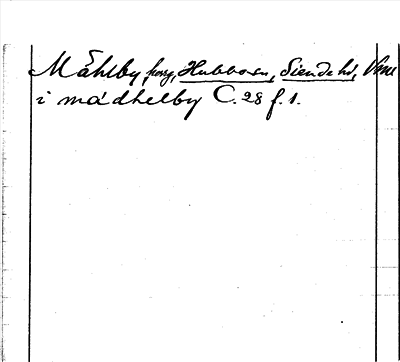 Måhlby, Hubbo sn, Siende hd, Vml
i mådhelby C. 28 f. 1.